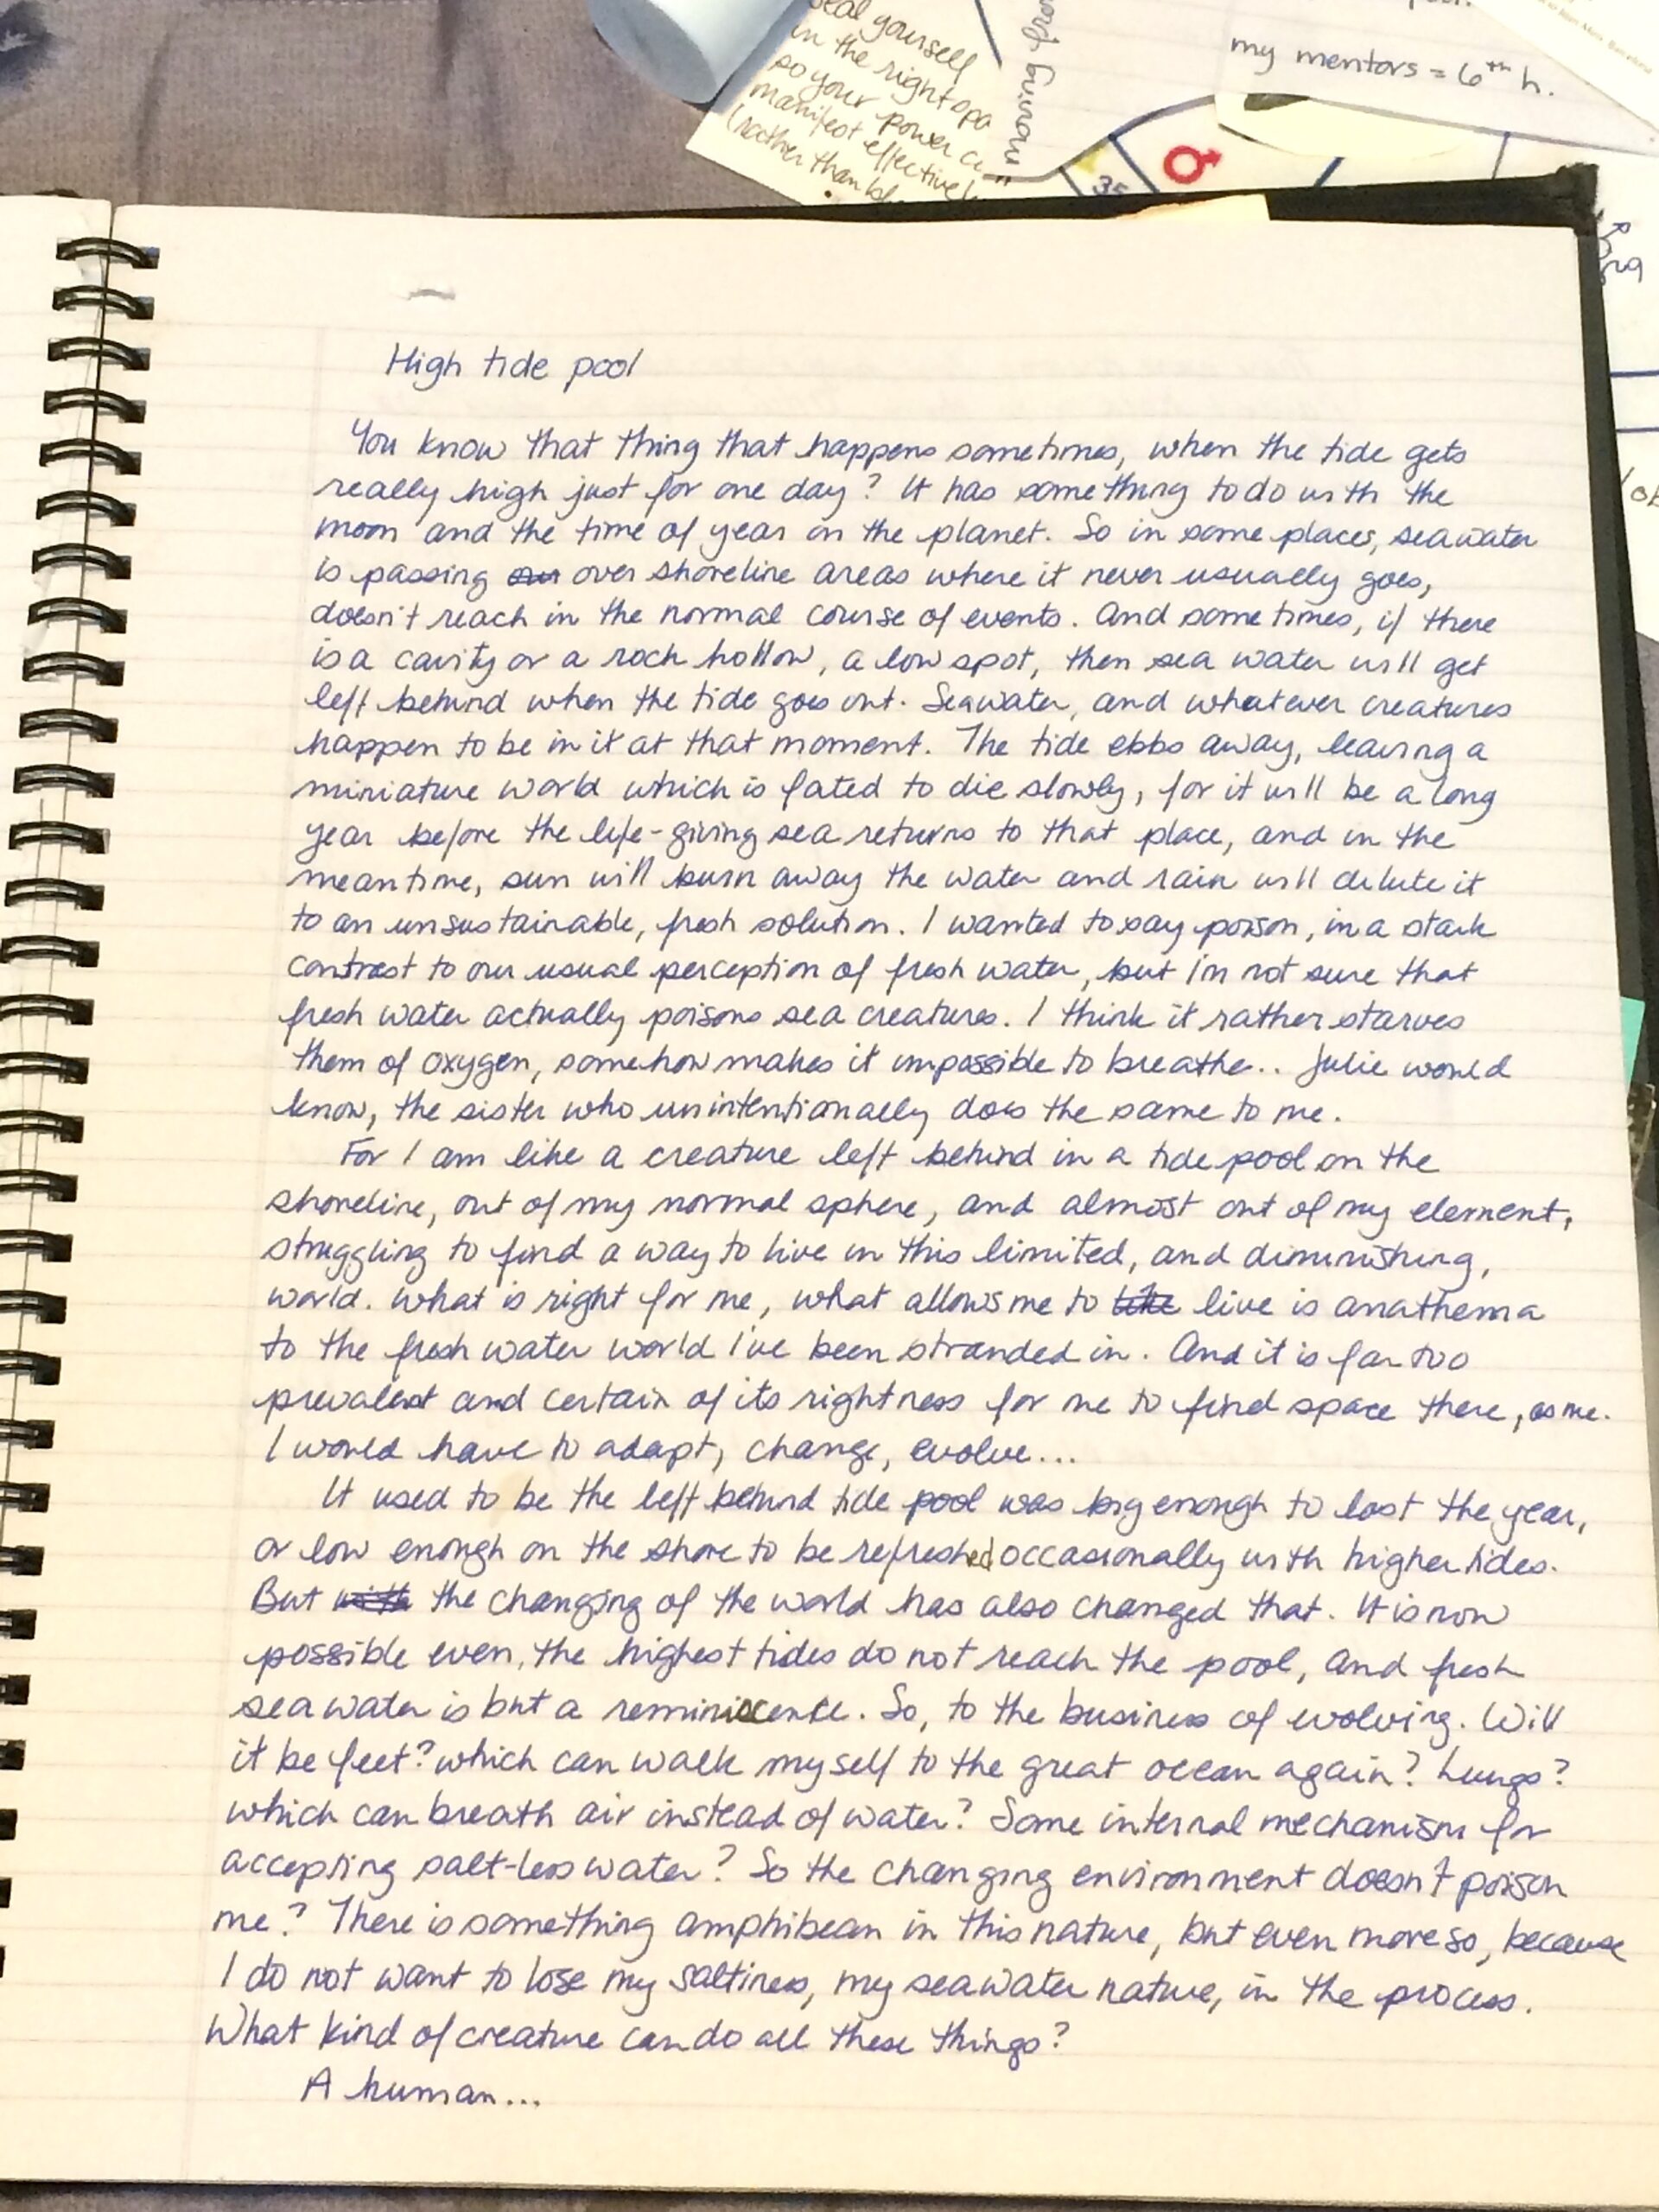 eal yourself
in the right spa
so your power ca
manifest effectively
(rather than bl
moving for
my mentors = 6th h.
35
High tide pool
You know that thing that happens sometimes, when the tide gets
really high just for one day? It has something to do with the
moon and the time of year on the planet. So in some places, seawater
is passing over shoreline areas where it never usually goes,
doesn't reach in the normal course of events. And sometimes, if there
is a cavity or a rock hollow, a low spot, then sea water will get
left behind when the tide goes out. Seawater, and whatever creatures
happen to be in it at that moment. The tide ebbs away, leaving a
miniature world which is fated to die slowly, for it will be a long
year before the life-giving sea returns to that place, and in the
meantime, sun will burn away the water and rain will dilute it
to an unsustainable, fresh solution. I wanted to say poison, in a stark
contrast to our usual perception of fresh water, but I'm not sure that
fresh water actually poisons sea creatures. I think it rather starves
them of oxygen, somehow makes it impossible to breathe.. Julie would
know, the sister who unintentionally does the same to me.
For I am like a creature left behind in a tide pool on the
shoreline, out of my normal sphere, and almost out of my element,
struggling to find a way to live in this limited, and diminishing,
world. What is right for me, what allows me to live is anathema
to the fresh water world I've been stranded in. And it is far too
prevalent and certain of its rightness for me to find space there, as me.
I would have to adapt, change, evolve...
It used to be the left behind tide pool was big enough to last the year,
or low enough on the shore to be refreshed occasionally with higher tides.
But the changing of the world has also changed that. It is now
possible even, the highest tides do not reach the pool, and fresh
sea water is but a reminiscence. So, to the business of evolving. Will
it be feet? which can walk myself to the great ocean again? Lungs?
which can breath air instead of water? Some internal mechanism for
accepting salt-less water? So the changing environment doesn't poison
me? There is something amphibean in this nature, but even more so, because
I do not want to lose my saltiness, my seawater nature, in the process.
What kind of creature can do all these things?
A human...